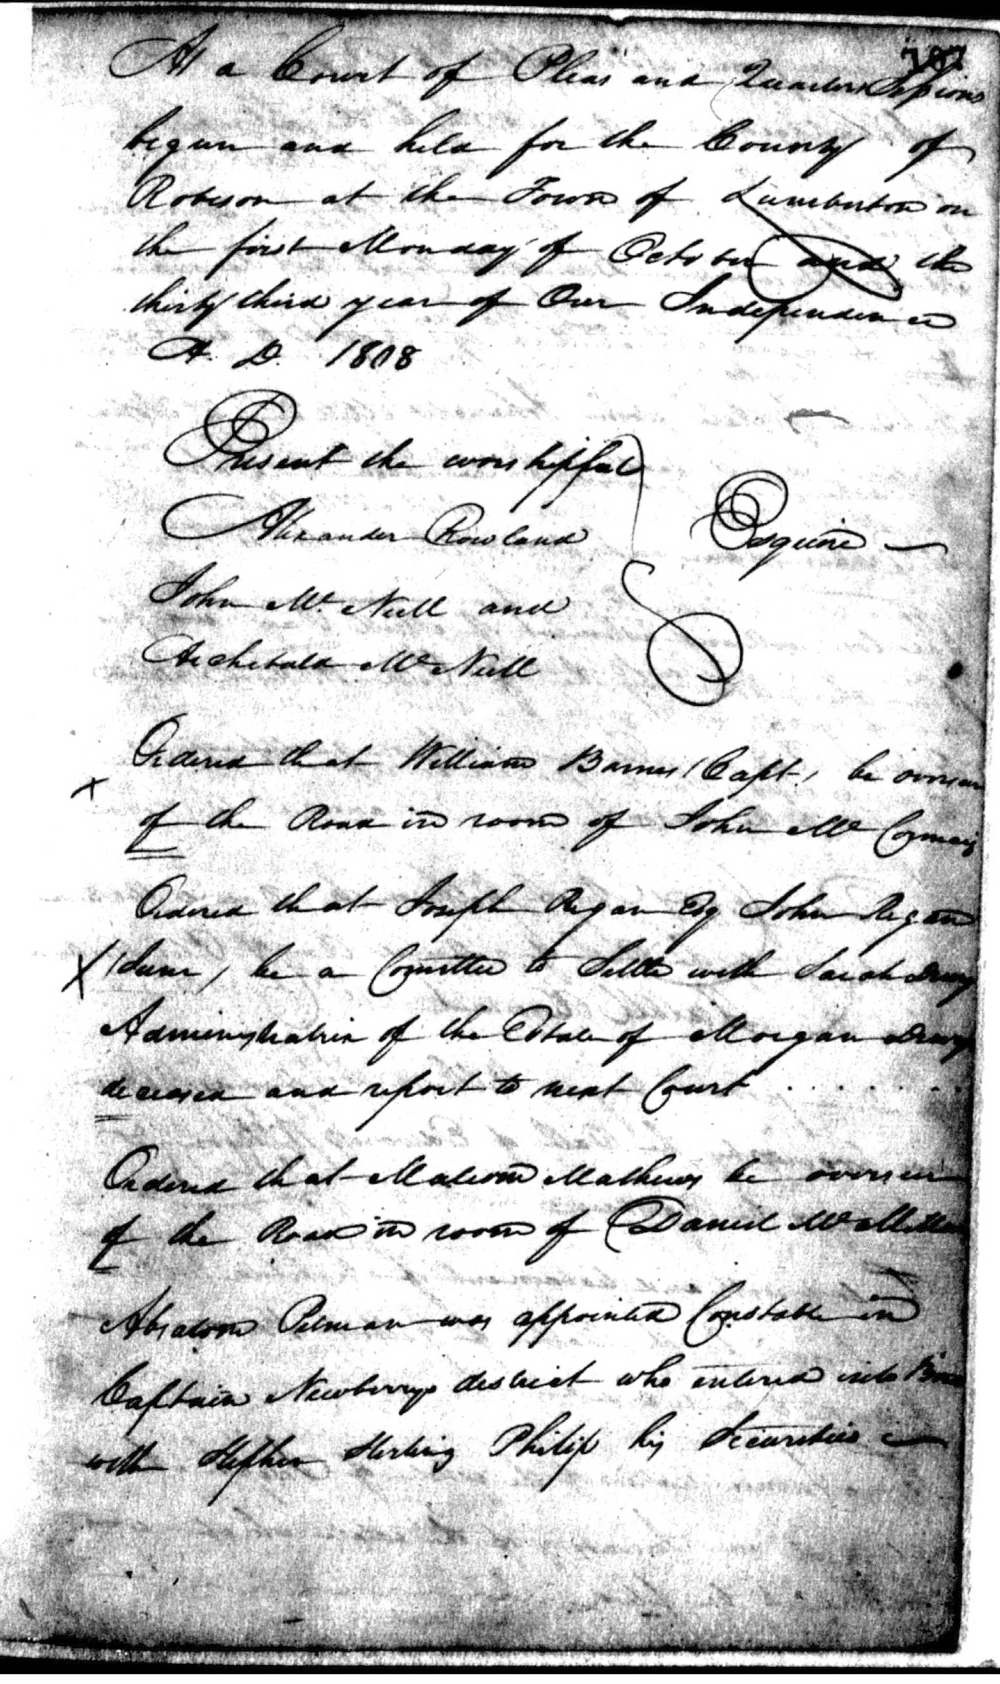 At a Court of Pleas and Quarter Sessions
begun and held for the County of
Robeson at the Town of Lumberton on
the first Monday of October and the
thirty third year of Our Independence
A. D. 1808
Present the worshipful
Alexander Rowland Esquire
John Mc Neill and
Archibald Mc Neill
Ordered that William Barnes (Capt.) be overseer
of the Road in room of John Mc
Ordered that Joseph Regan Esq John Regan
(Junr) be a Comittee to Settle with Sarah Drury
Administratrix of the Estate of Morgan Drury
deceased and report to next Court
Ordered that Malcom Mathews be overseer
of the Road in room of Daniel Mc
Absalom Pitman was appointed Constable in
Captain Newberrys district who entered into Bond
with Stephen Sterling Philip his Securities